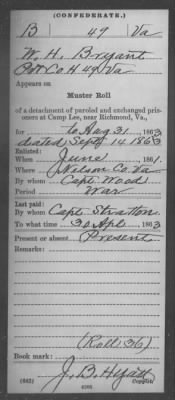 (CONFEDERATE.)
B 49 Va
W. H. Bryant
Pvt Co H 49 Va
Appears on
Muster Roll
of a detachment of paroled and exchanged pris-
oners at Camp Lee, near Richmond, Va.,
for to Aug 31, 1863
dated Sept 14 1863
Enlisted:
When June, 1861.
Where Nelson Co. Va
By whom Capt. Wood
Period War
Last paid:
By whom Capt Stratton
To what time 30 Apl, 1863
Present or absent Present
Remarks:
(Roll 36)
Book mark:
J. B. Hyatt
(642) Copyist.